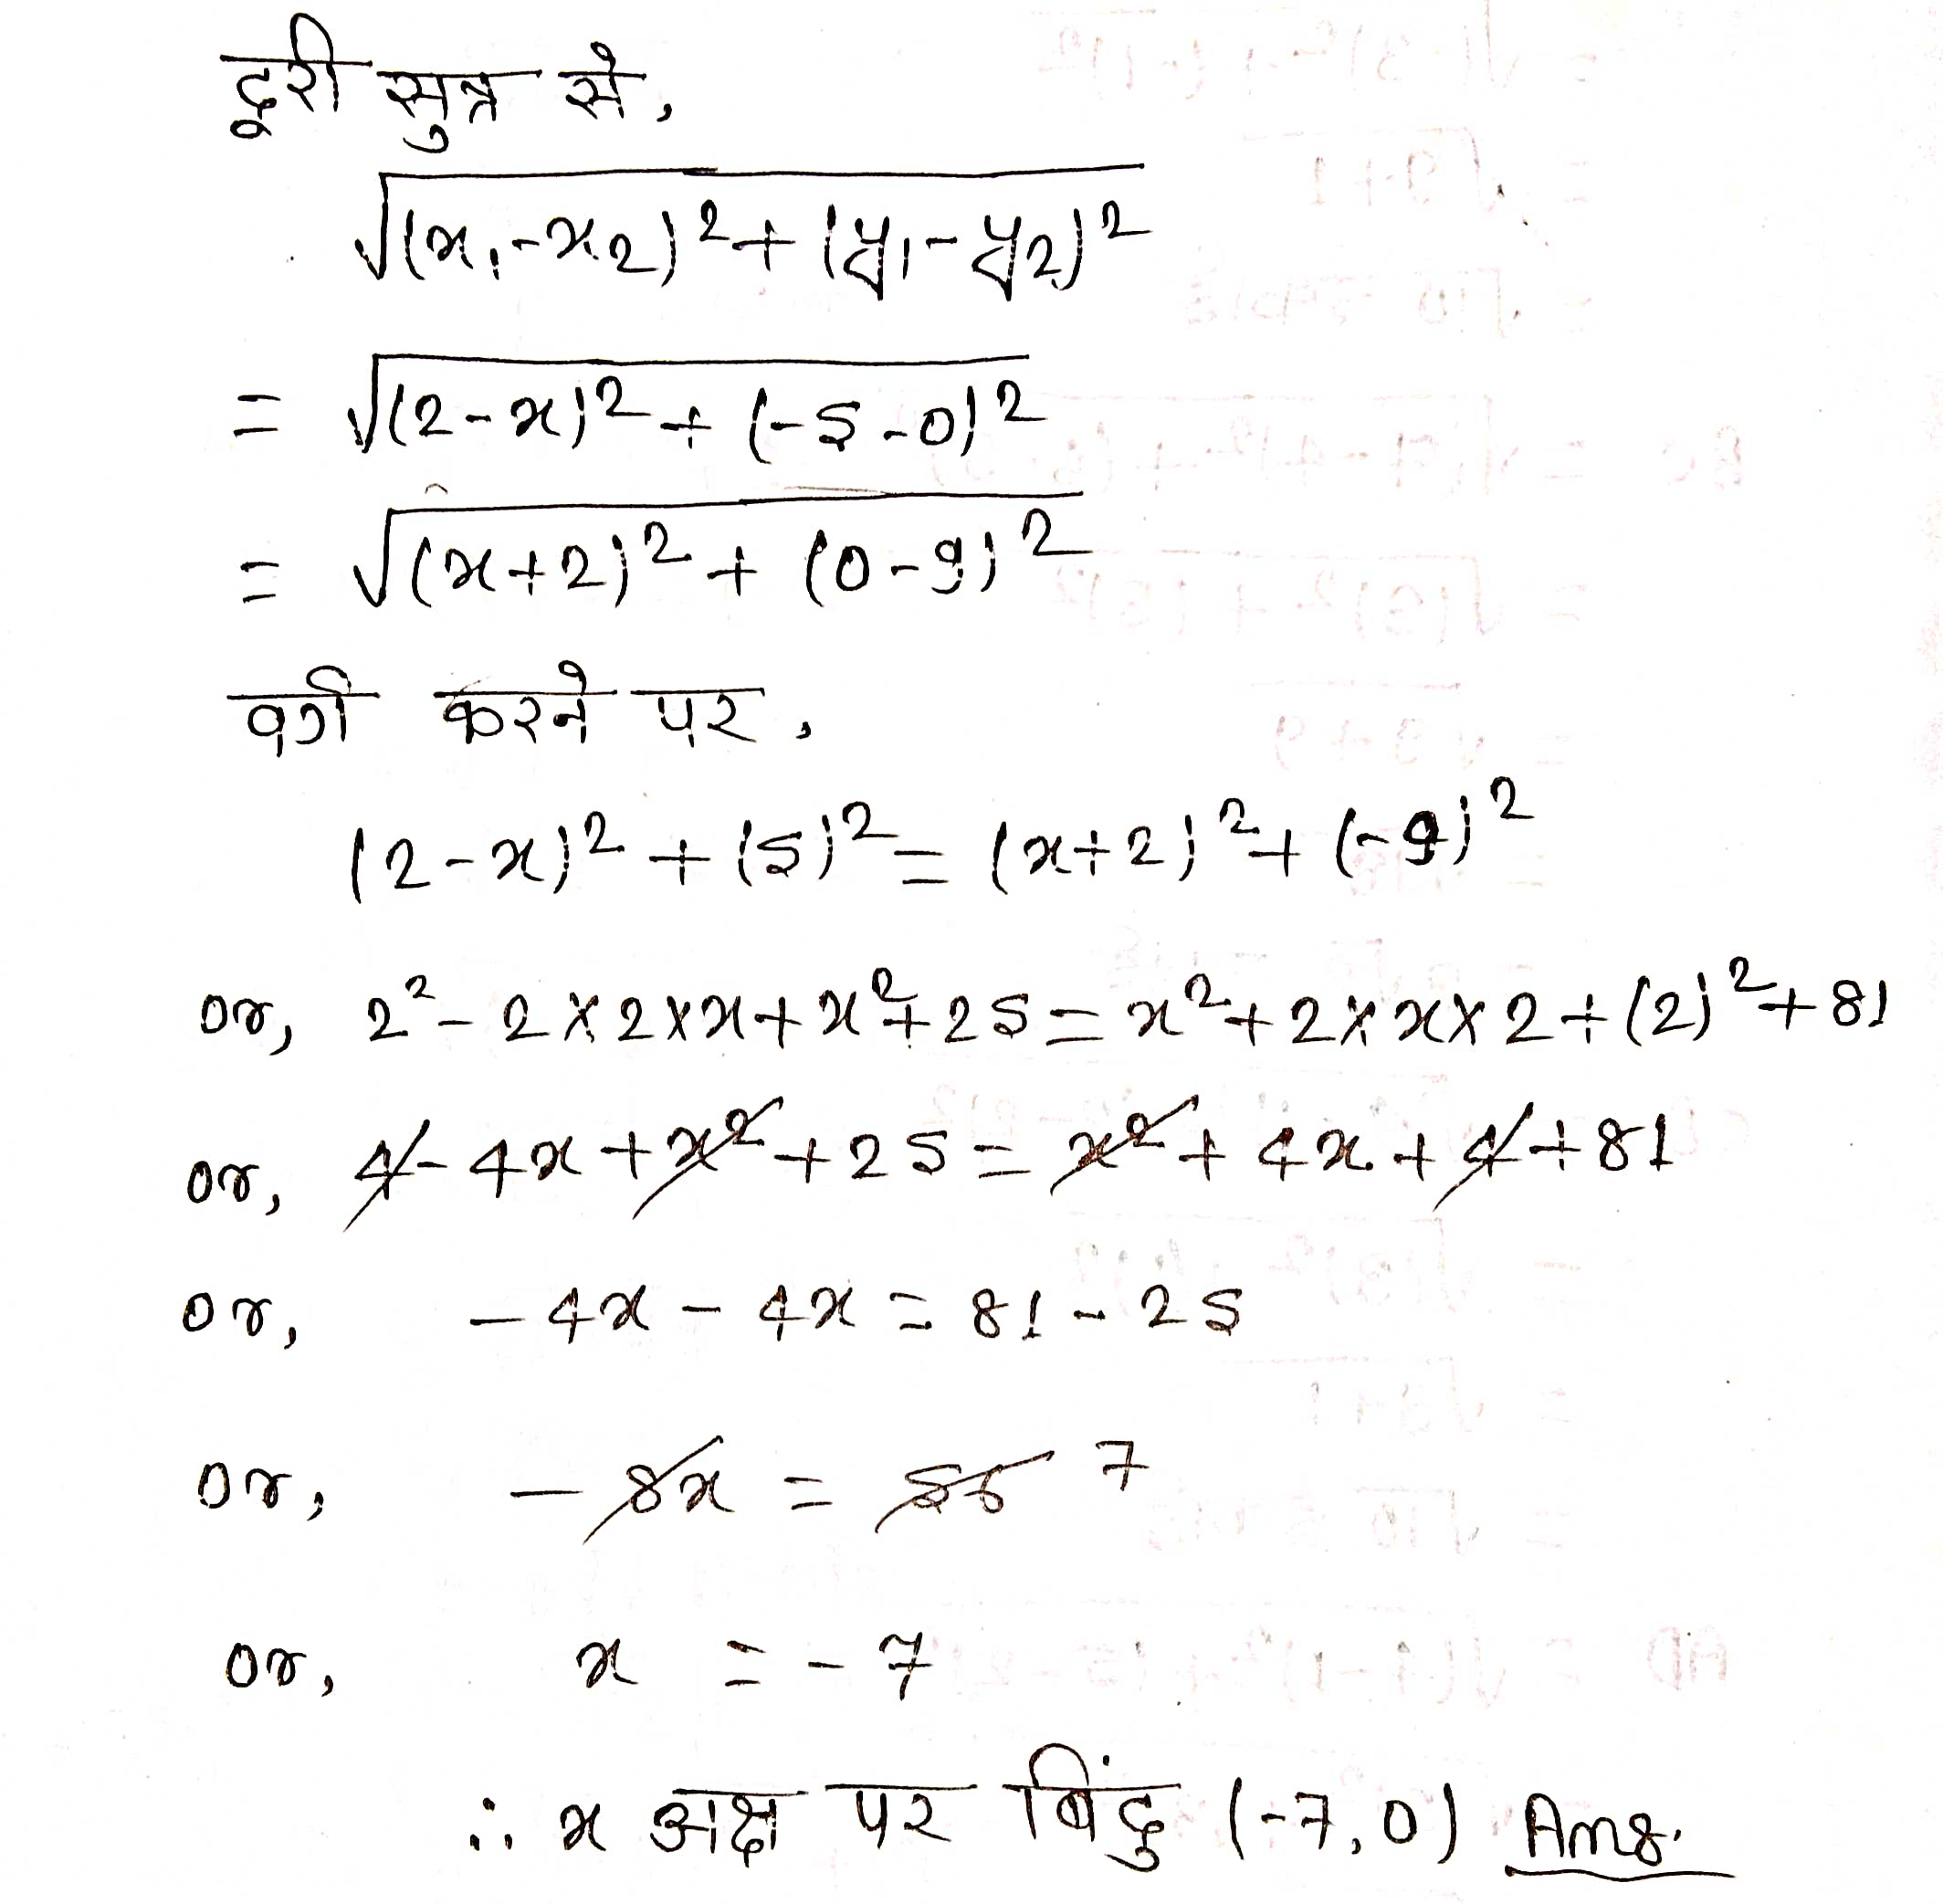 दूरी सुत्र से,
√(x₁-x₂)² + (y₁-y₂)²
= √(2-x)² + (-5-0)²
= √(x+2)² + (0-9)²
वर्ग करने पर,
(2-x)² + (5)² = (x+2)² + (-9)²
or, 2² - 2×2×x + x² + 25 = x² + 2×x×2 + (2)² + 81
or, 4 - 4x + x² + 25 = x² + 4x + 4 + 81
or, -4x - 4x = 81 - 25
or, -8x = 56 7
or, x = -7
∴ x अक्ष पर बिंदु (-7,0) Ans.